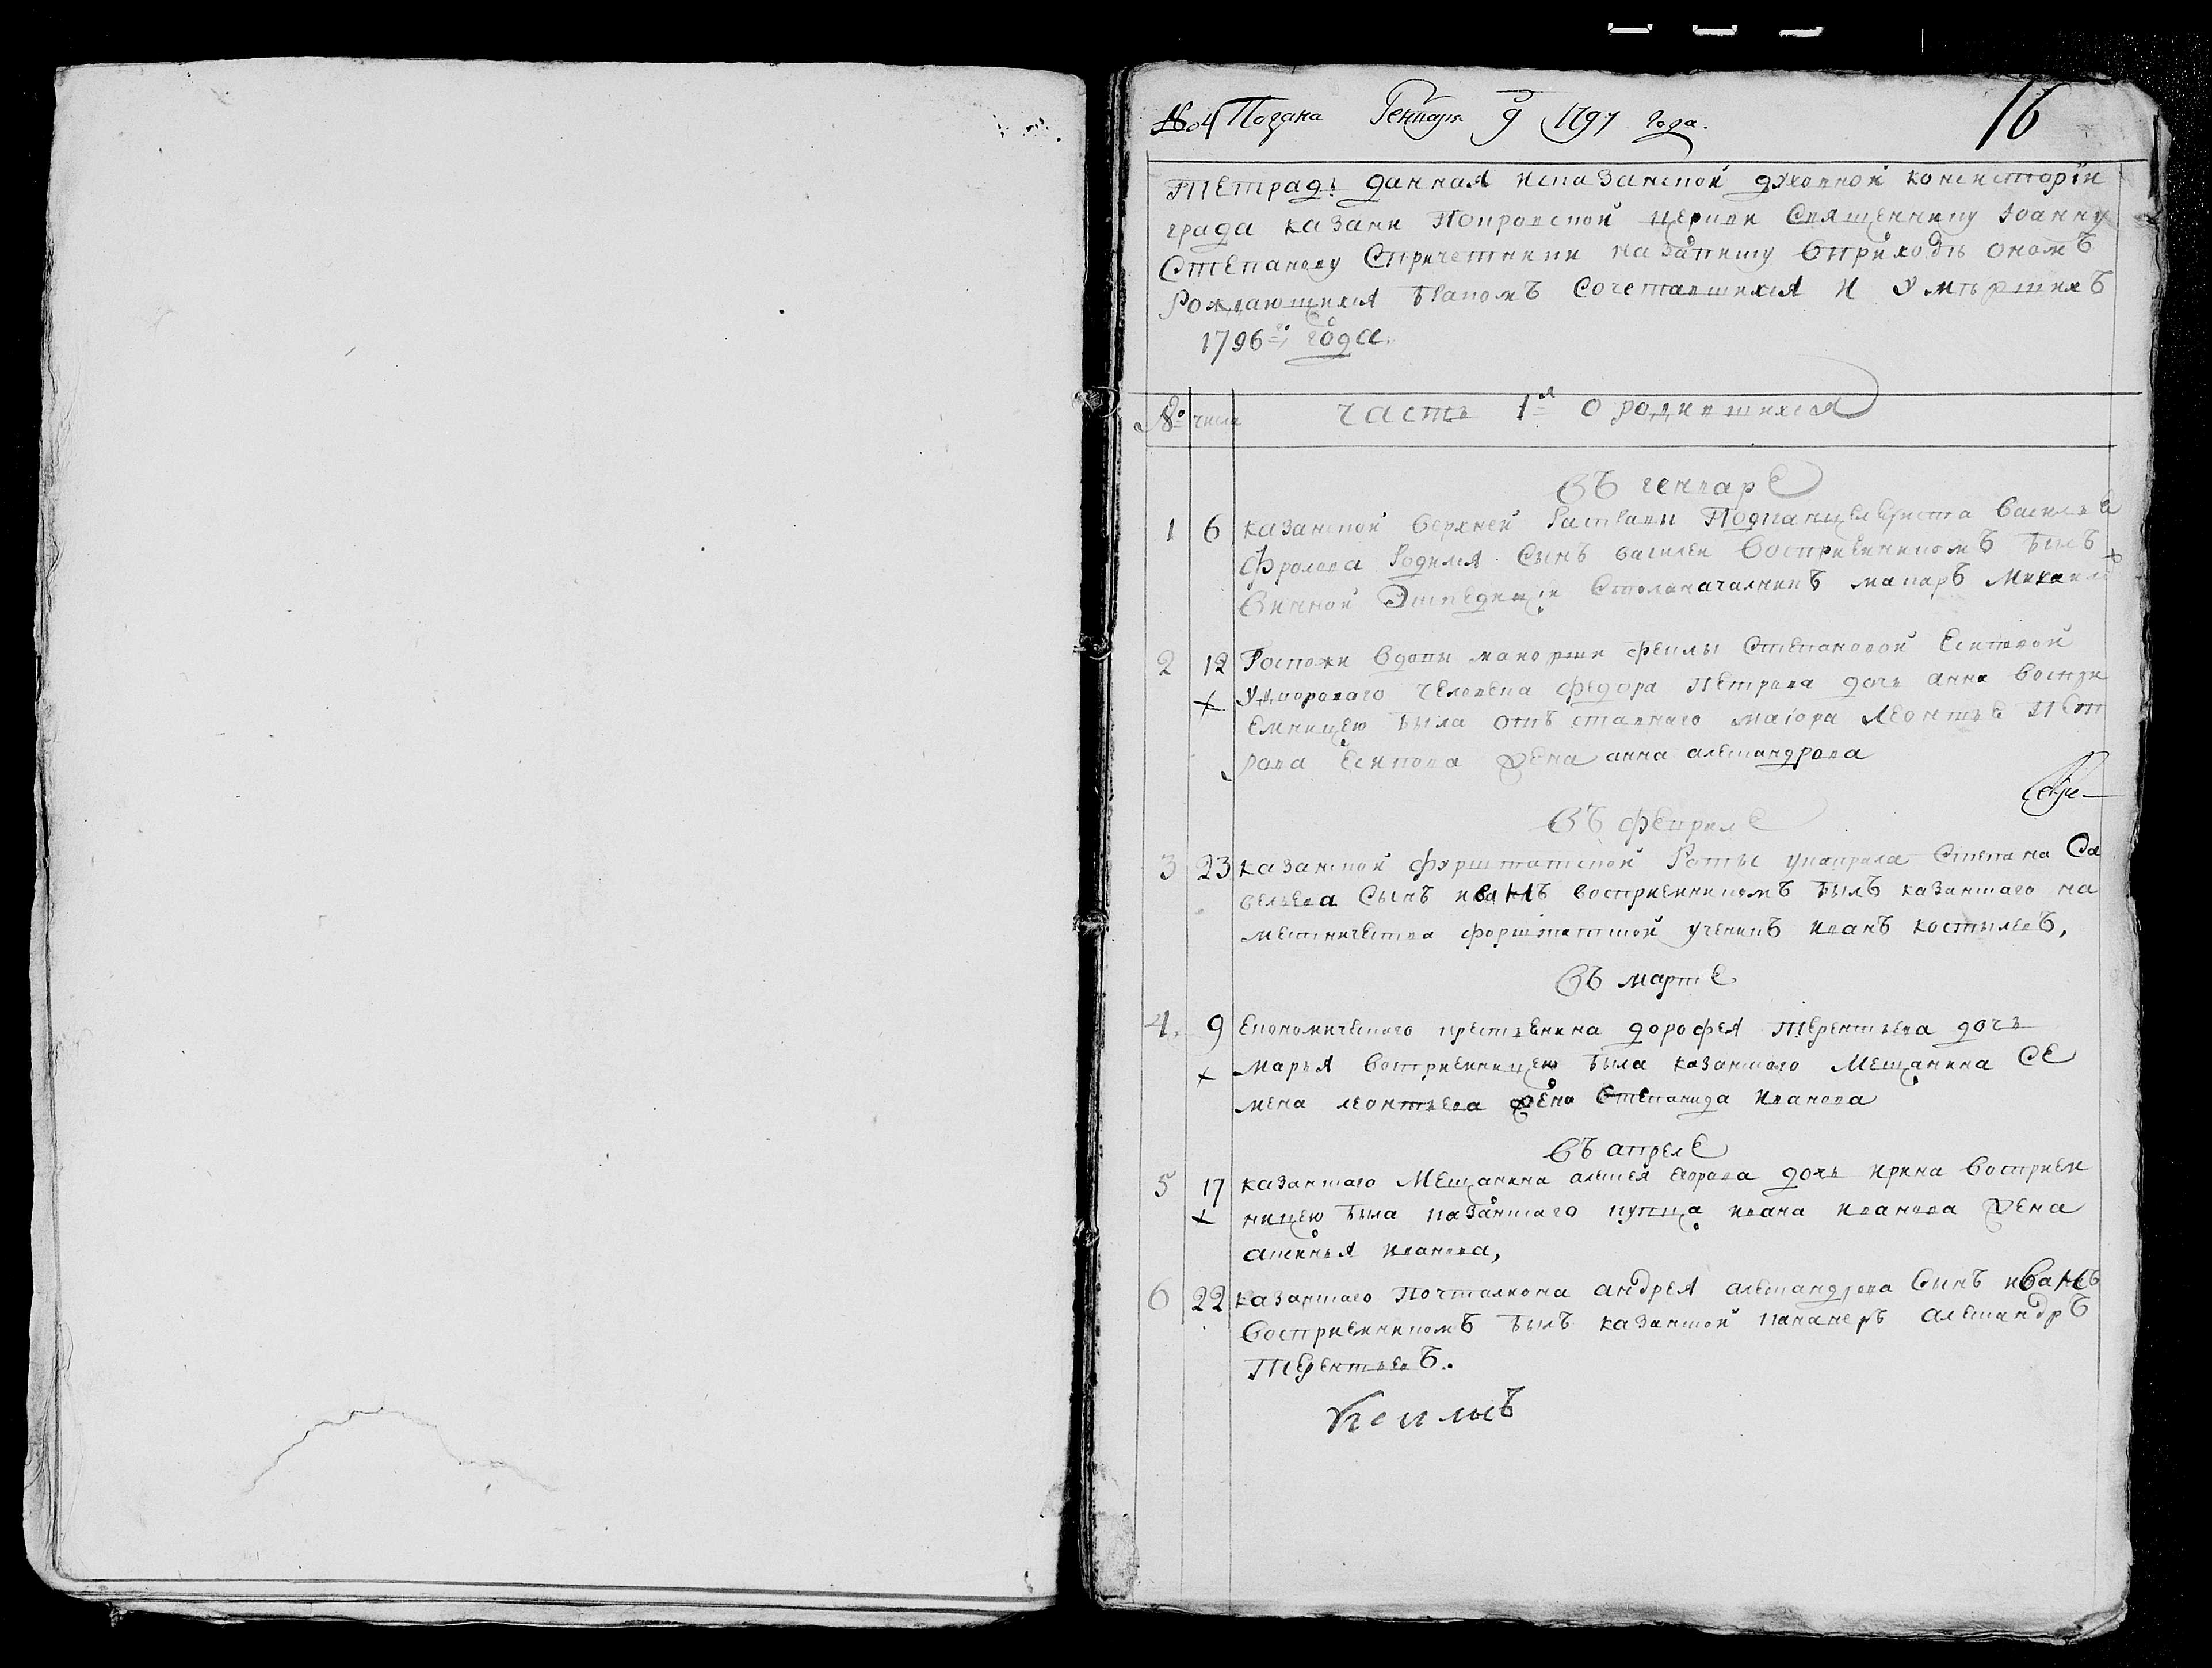 Подана Генваря 9 1797 года.
16
Тетрадь данная исказанской духовной консисторіи
града казани Покровской церкви Священнику Іоанну
Степанову Спричетники назапису вприходѣ ономъ
Рождающихся бракомъ Сочетавшихся и Умѣршихъ
1796го года.
№ числа часть 1я о родившихся
Въ генваре
1 6 казанской верхней Расправы Подканцеляриста василья
Фролова Родился Сынъ василей Восприемникомъ былъ
Винной Экспедиціи Столоначалникъ макаръ Михаило
2 12 Госпожи вдовы маиорши феклы Степановой Есиповой
Удвороваго человека федора Петрова дочь анна воспри
емницею была отъставнаго маіора Леонтье Пет
рова Есипова жена анна александрова
Секре
Въ феврале
3 23 казанской фурштатской Роты унапрала Степана Са
вельева Сынъ иванъ восприемникомъ былъ казанскаго на
местничества форштатской ученикъ иванъ костылевъ,
Въ марте
4. 9 Економическаго крестьенина дорофея Терентьева дочь
марья восприемницею была казанскаго Мещанина Се
мена леонтьева жена Степанида иванова
Въ апреле
5 17 казанскаго Мещанина алексея егорова дочь ирина восприем
ницею была казанскаго купца ивана иванова жена
аксинья иванова,
6 22 казанскаго Почталиона андрея александрова Сынъ иванъ
восприемникомъ былъ казанской кананеръ александръ
Терентьевъ.